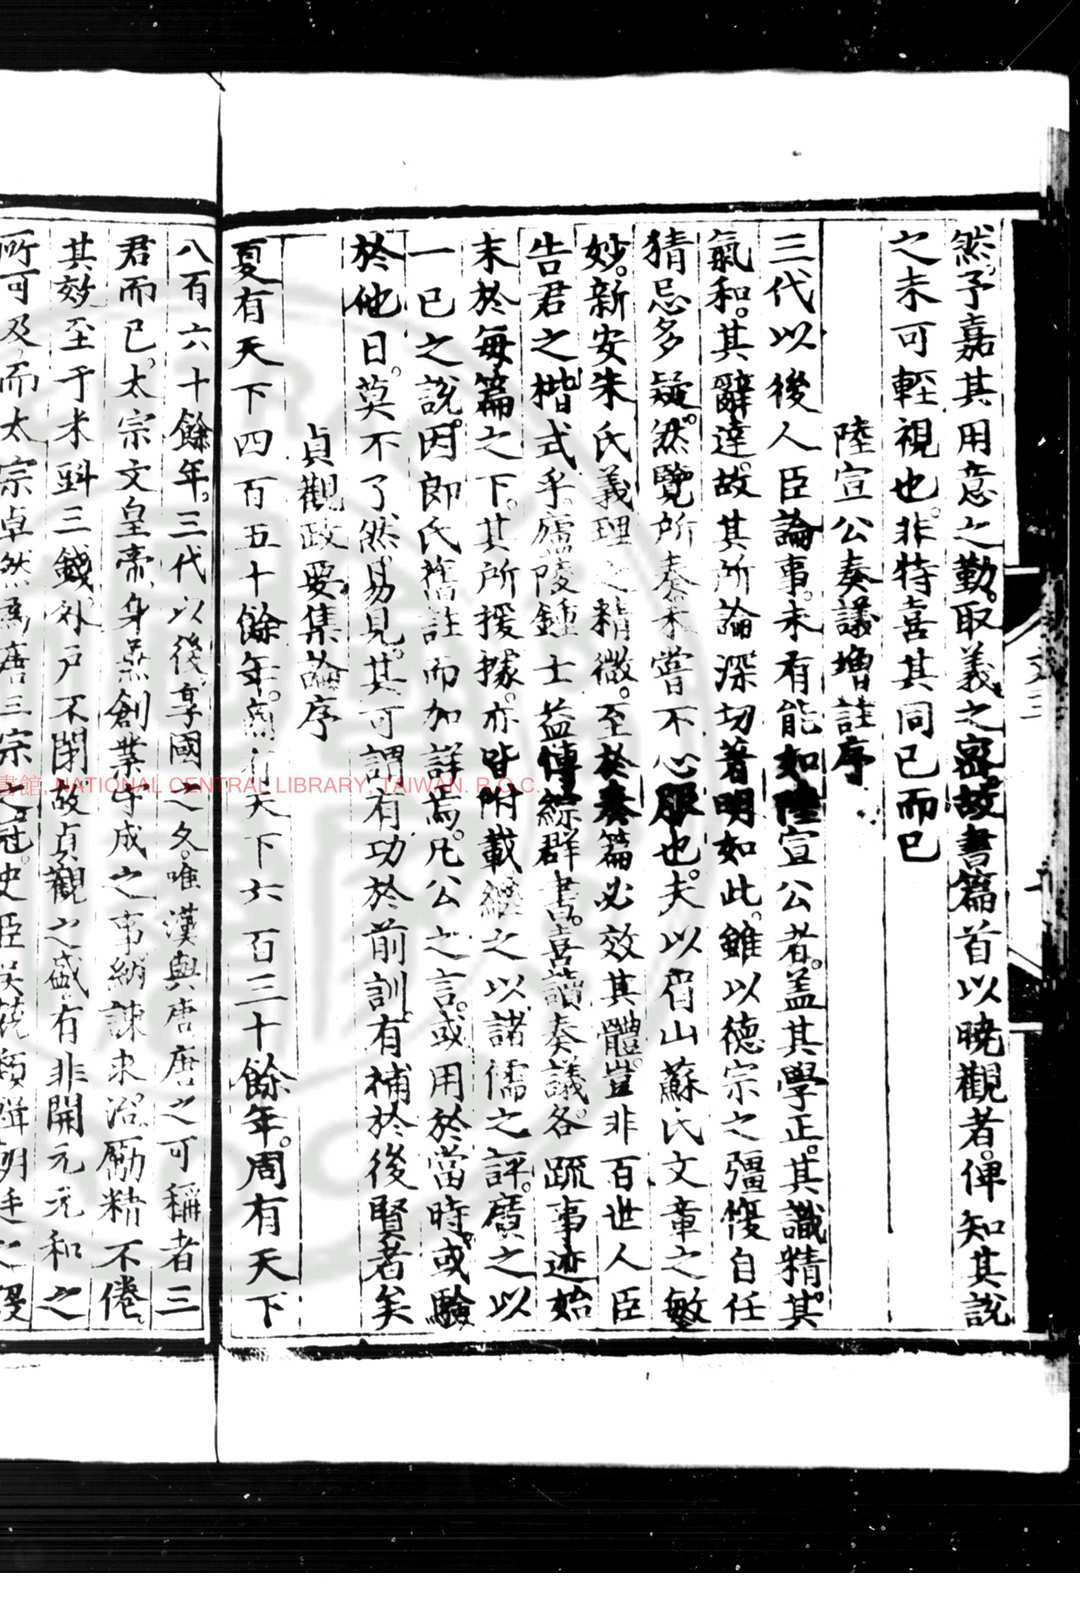 然。予嘉其用意之勤。取義之密。故書篇首以曉觀者。俾知其説
之未可輕視也。非特喜其同已而已
陸宣公奏議增註序
三代以後人臣論事。未有能如陸宣公者。盖其學正。其識精。其
氣和。其辭達。故其所論深切著明如此。雖以德宗之彊愎自任
猜忌多疑。然覽所奏未嘗不心服也。夫以眉山蘇氏文章之敏
妙。新安朱氏義理之精微。至於奏篇必效其體。豈非百世人臣
告君之楷式乎。廬陵鍾士益傳綜群書。喜讀奏議。各疏事迹始
末於每篇之下。其所援據。亦皆附載。繼之以諸儒之評。廣之以
一已之説。因郎氏舊註而加詳焉。凡公之言。或用於當時。或驗
於他日。莫不了然易見。其可謂有功於前訓有補於後賢者矣
貞觀政要集論序
夏有天下四百五十餘年。商有天下六百三十餘年。周有天下
八百六十餘年。三代以後享國之久。唯漢與唐。唐之可稱者三
君而已。太宗文皇帝身兼創業守成之事。納諫求治。勵精不倦
其效至于米斗三錢。外戶不閉。故貞觀之盛。有非開元元和之
所可及。而太宗卓然爲唐三宗之冠。史臣吳兢類輯朝廷之
NATIONAL CENTRAL LIBRARY, TAIWAN. R.O.C.